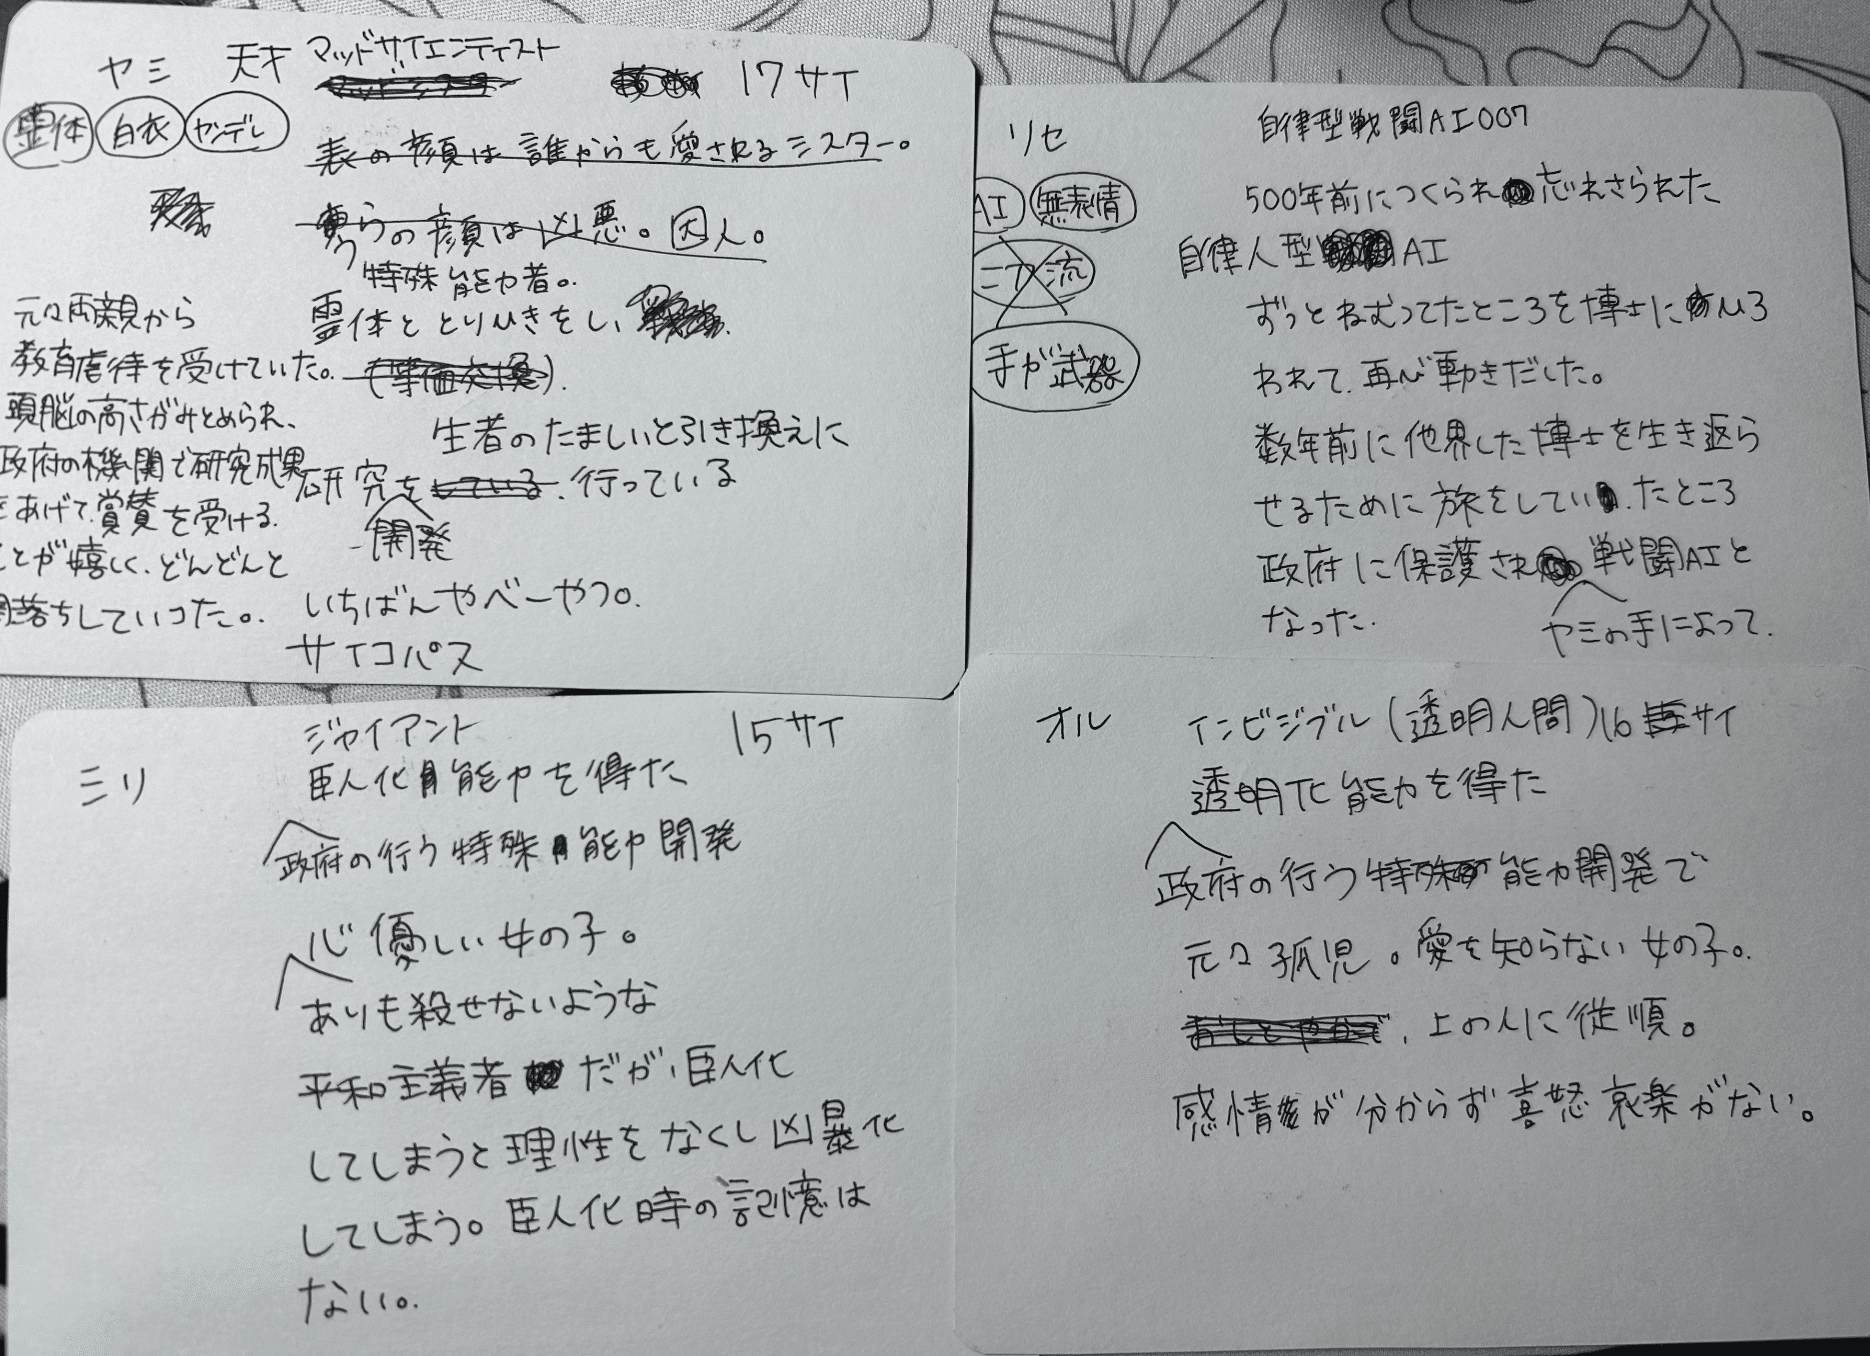 ヤミ 天才 マッドサイエンティスト 17サイ
霊体 白衣 ヤンデレ
表の顔は誰からも愛されるミスター。
裏の顔は凶悪。囚人。
特殊能力者。
霊体ととりひきをし、
(等価交換).
生者のたましいと引き換えに
研究を している.行っている
開発
いちばんやべーやつ。
サイコパス
元々両親から
教育虐待を受けていた。
頭脳の高さがみとめられ、
政府の機関で研究成果
をあげて、賞賛を受ける
ことが嬉しく、どんどんと
闇落ちしていった。
リセ 自律型戦闘AI007
AI 無表情
二刀流
手が武器
500年前につくられ忘れさられた
自律人型AI
ずっとねむってたところを博士にひろ
われて、再び動きだした。
数年前に他界した博士を生き返ら
せるために旅をしてい.たところ
政府に保護され戦闘AIと
なった.
ヤミの手によって.
ミリ ジャイアント 15サイ
巨人化能力を得た
政府の行う特殊能力開発
心優しい女の子。
ありも殺せないような
平和主義者だが、巨人化
してしまうと理性をなくし凶暴化
してしまう。巨人化時の記憶は
ない。
オル インビジブル(透明人間)16サイ
透明化能力を得た
政府の行う特殊能力開発で
元々孤児。愛を知らない女の子。
おしとやかで、上の人に従順。
感情が分からず喜怒哀楽がない。